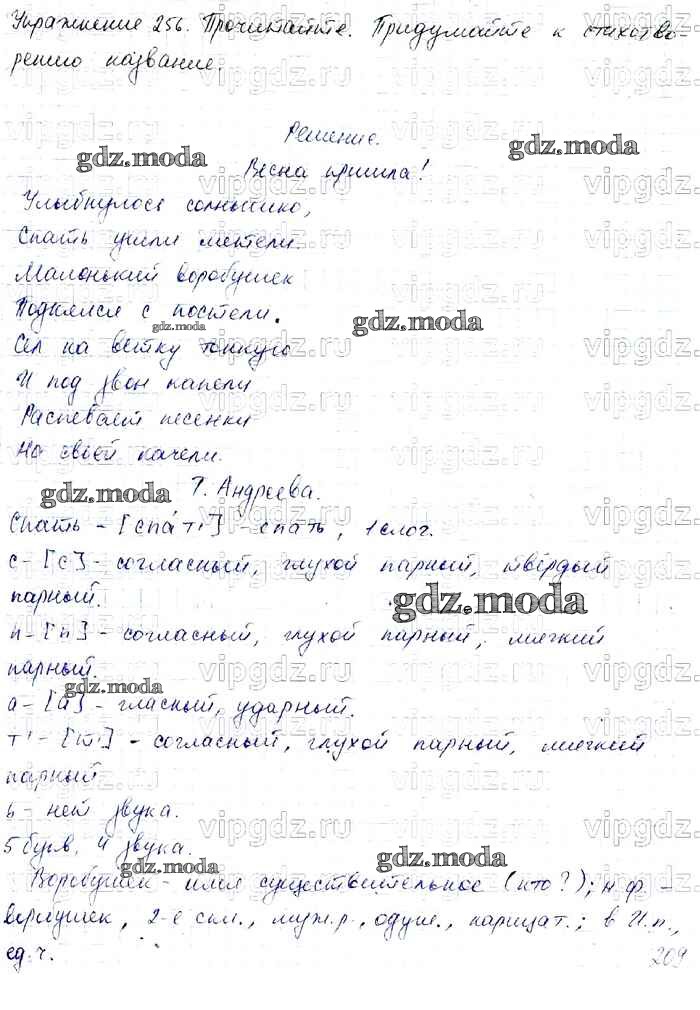 Упражнение 256. Прочитайте. Придумайте к стихотво-
рению название.
Решение.
gdz.moda
gdz.moda
Весна пришла!
Улыбнулось солнышко,
Спать ушли метели.
Маленький воробушек
Поднялся с постели.
gdz.moda
gdz.moda
Сел на ветку тонкую
И под звон капели
Распевает песенки
На своей качели.
Т. Андреева.
gdz.moda
Спать – [спáт'] – спать, 1 слог.
с – [с] – согласный, глухой парный, твёрдый
парный.
gdz.moda
п – [п] – согласный, глухой парный, мягкий
парный.
gdz.moda
а – [а] – гласный, ударный.
т' – [т'] – согласный, глухой парный, мягкий
парный
ь – нет звука.
5 букв, 4 звука.
gdz.moda
gdz.moda
Воробушек – имя существительное (кто?); н.ф. –
воробушек, 2-е скл., муж.р., одуш., нарицат.; в И.п.,
ед.ч.
209
vipgdz.ru